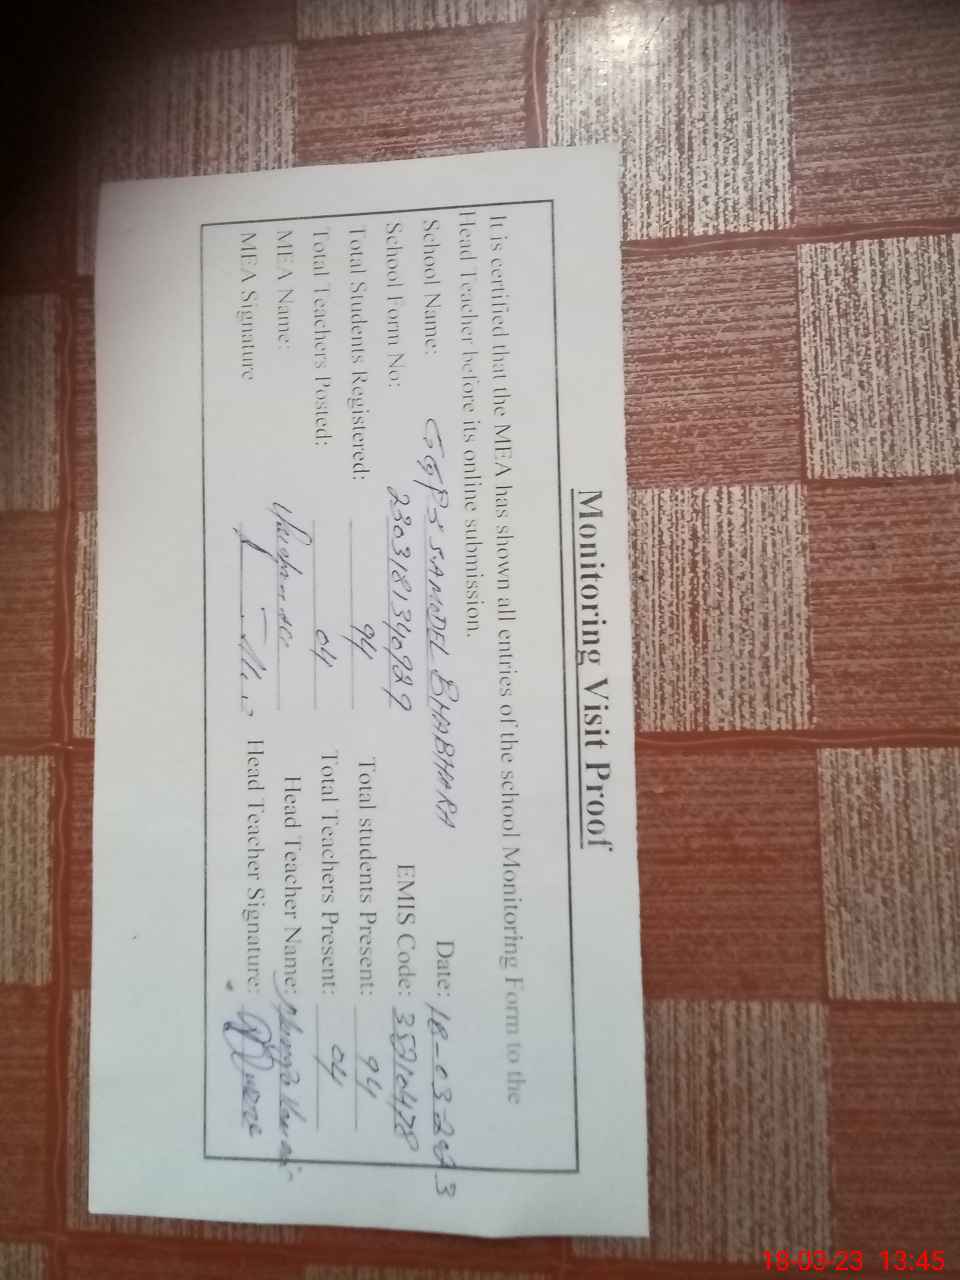 Monitoring Visit Proof
It is certified that the MEA has shown all entries of the school Monitoring Form to the
Head Teacher before its online submission.
School Name: GGPS SAMDEL BHABHARA Date: 18-03-2023
School Form No: 2303181340929 EMIS Code:
Total Students Registered: 94 Total students Present: 94
Total Teachers Posted: 04 Total Teachers Present: 04
MEA Name: Head Teacher Name:
MEA Signature Head Teacher Signature:
18-03-23 13:45